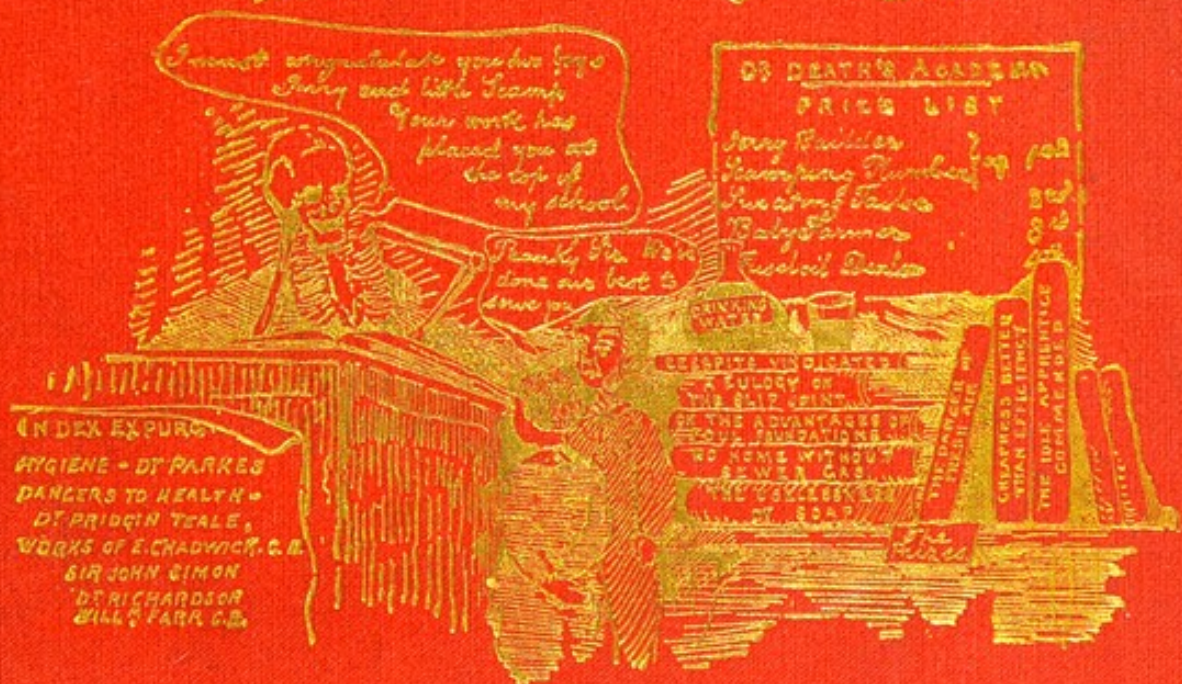 I must congratulate you two boys
Jerry and little Scamp
Your work has
placed you at
the top of
my school
Thanky Sir We've
done our best to
serve you
DR DEATH'S ACADEMY
PRIZE LIST
Jerry Builder
Scamping Plumber
Sweating Tailor
Baby Farmer
Fuseloil Dealer
DRINKING
WATER
CESSPITS VINDICATED
A EULOGY ON
THE SLIP JOINT
ON THE ADVANTAGES OF
FOUL FOUNDATIONS
NO HOME WITHOUT
SEWER GAS
THE USELESSNESS
OF SOAP
THE DANGER OF
FRESH AIR
CHEAPNESS BETTER
THAN EFFICIENCY
THE IDLE APPRENTICE
COMMENDED
The
Prizes
INDEX EXPURG
HYGIENE - DR PARKES
DANGERS TO HEALTH -
DR PRIDGIN TEALE,
WORKS OF E. CHADWICK. C.B.
SIR JOHN SIMON
DR RICHARDSON
WILLM PARK C.B.